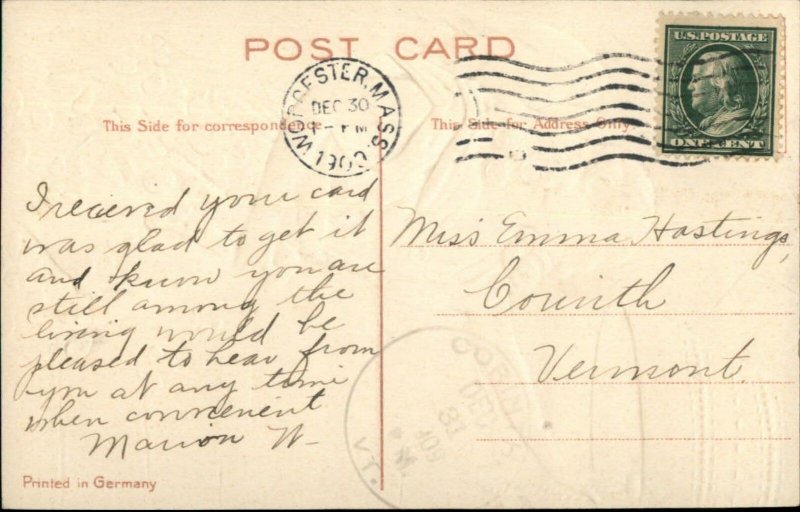 POST CARD
WORCESTER, MASS.
DEC 30
1909
U.S. POSTAGE
ONE CENT
This Side for correspondence
This Side for Address Only
I received your card
was glad to get it
and know you are
still among the
living would be
pleased to hear from
you at any time
when convenient
Marion W
Miss Emma Hastings,
Corinth
Vermont.
CORINTH
DEC
31
09
VT.
Printed in Germany